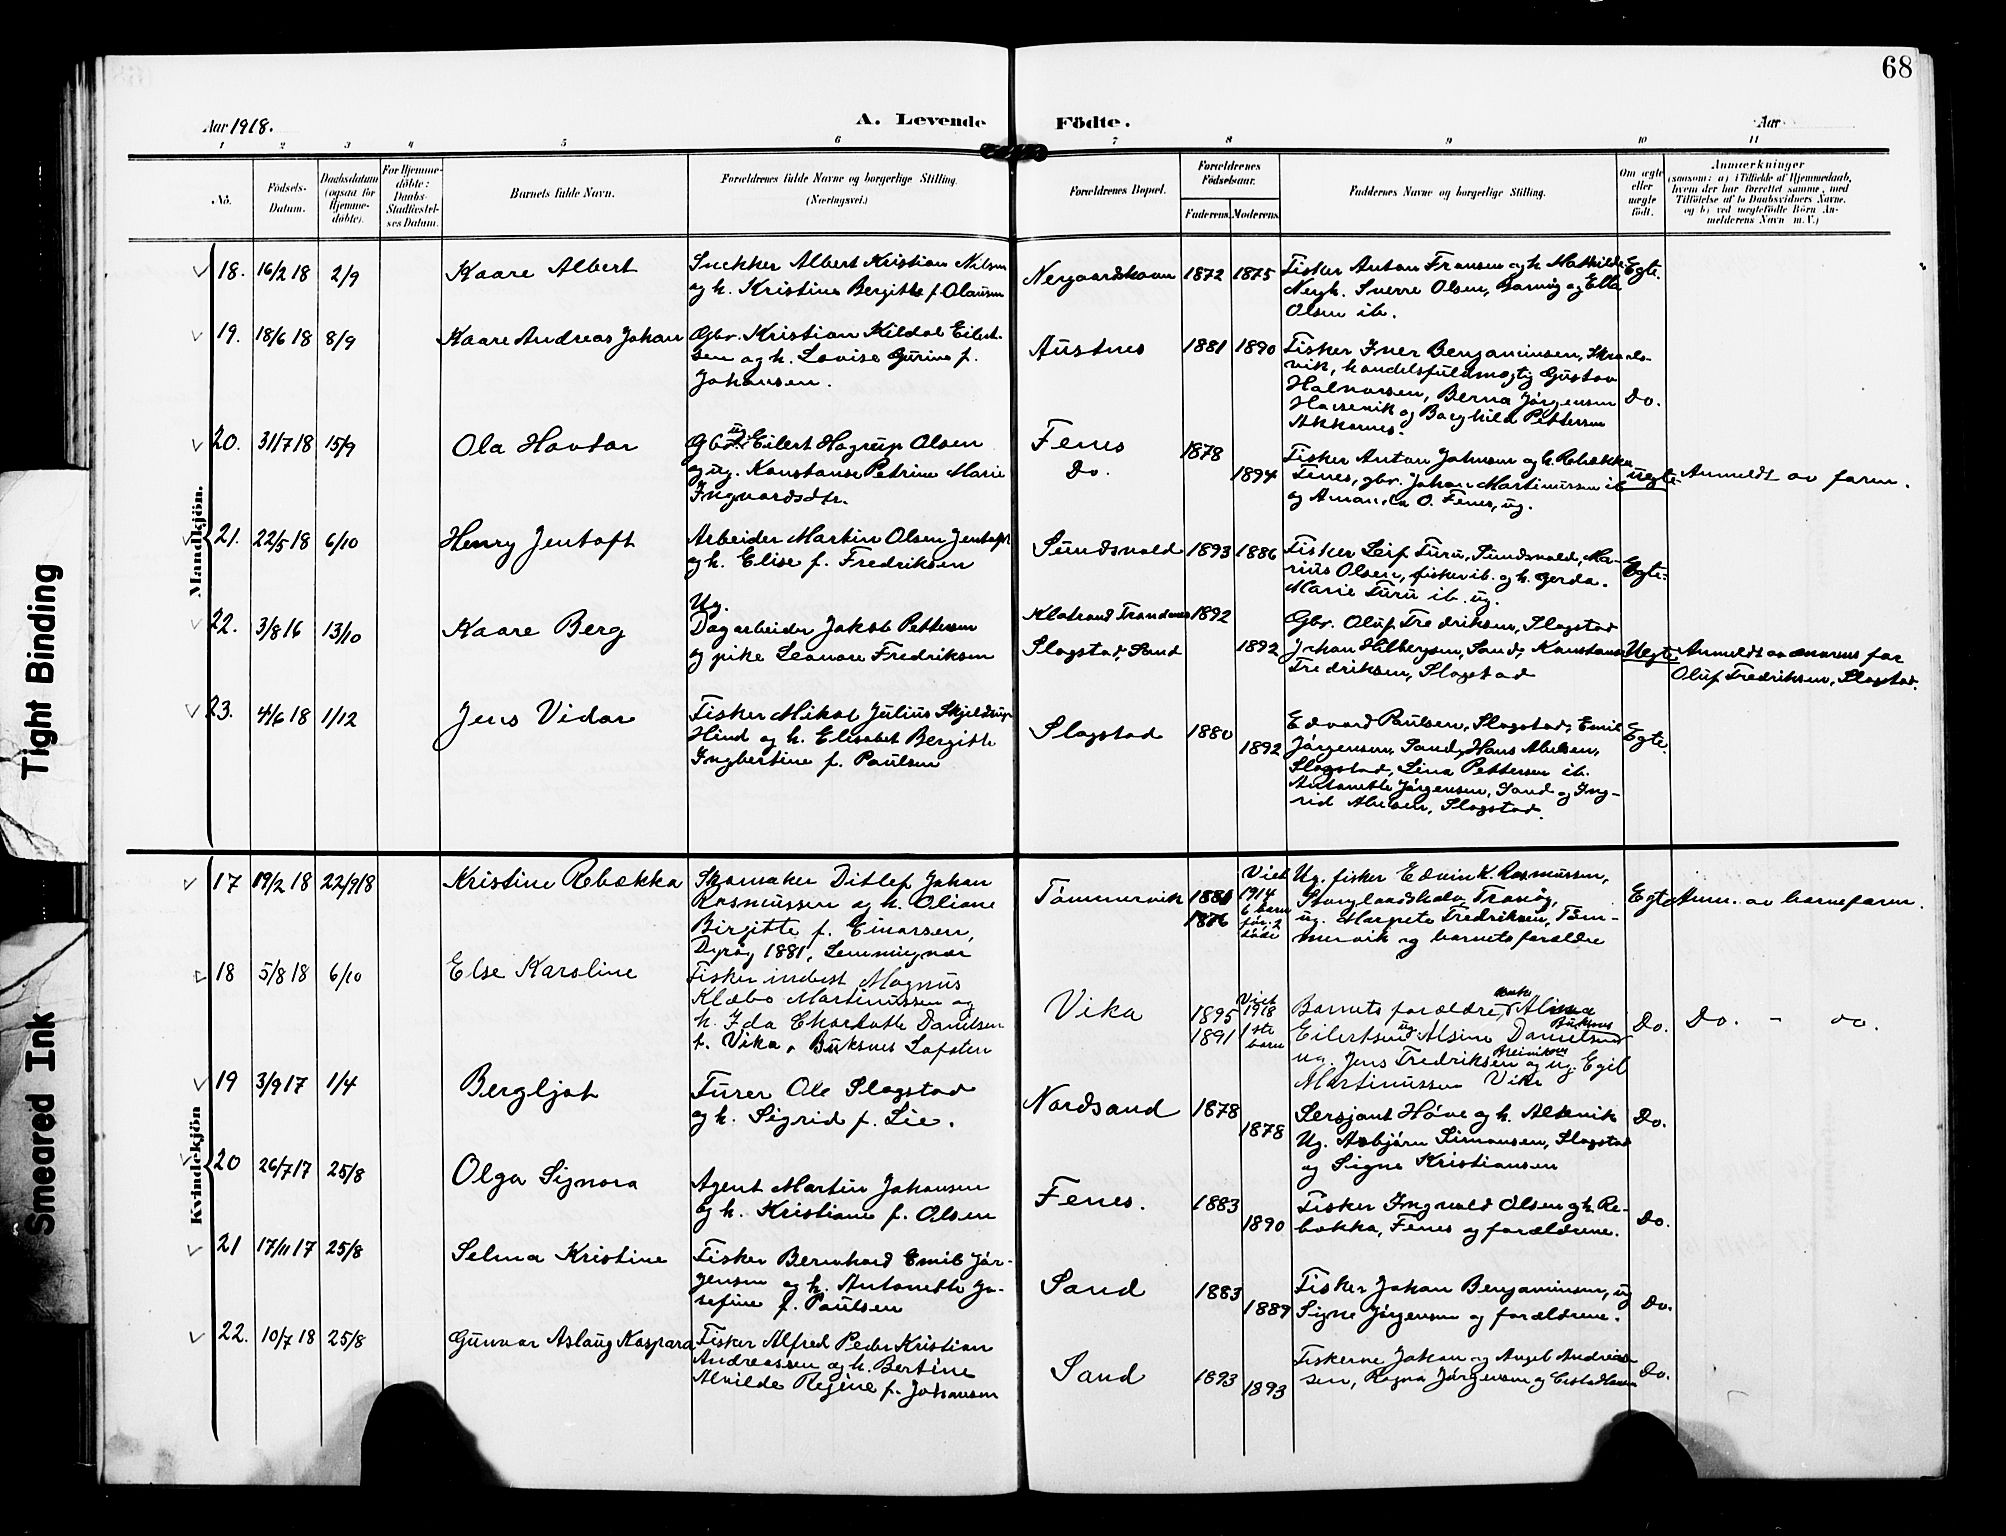 68
Aar 1918.
A. Levende
Födte.
Aar
1 2 3 4 5 6 7 8 9 10 11
No.
Födsels-
Datum.
Daabsdatum
(ogsaa for
Hjemme-
döbte).
For Hjemme-
döbte:
Daabs-
Stadfæstel-
ses Datum.
Barnets fulde Navn.
Forældrenes fulde Navne og borgerlige Stilling.
(Næringsvei.)
Forældrenes Bopæl.
Forældrenes
Födselsaar.
Faderens. Moderens.
Faddernes Navne og borgerlige Stilling.
Om ægte
eller
uægte
født.
Anmærkninger
(saasom: a) i Tilfælde af Hjemmedaab,
hvem der har forrettet samme, med
Tilföielse af to Daabsvidners Navne,
og b) ved uægtefödte Börn An-
melderens Navn m. V.)
Mandkjön.
18. 16/2 18 2/9
Kaare Albert
Snekker Albert Kristian Nilsen
og h. Kristine Bergitte f. Olausen
Nergaardshavn 1872 1875
Fisker Anton Fransen og h. Mathilde
Nergh. Sverre Olsen, og Ella
Olsen ib.
Egte.
19. 18/6 18 8/9
Kaare Andreas Johan
Gbr. Kristian Kildal Eilert-
sen og h. Lovise Gurine f.
Johansen.
Austnes 1881 1890
Fisker Iver Benjaminsen,
vik, handelsfuldmægtig Gustav
Halvorsen, Berna Jørgensen
og Borghild Pettersen
Do.
20. 31/7 18 15/9
Ola Hovtor
ug.
Gbr. Eilert Hagrup Olsen
og ug. Konstanse Petrine Marie
Ingvardsdtr.
Fenes
Do.
1878
1894
Fisker Anton Johnsen og h. Rebækka
Fenes, gbr. Johan Martinussen ib
og Amanda O. Fenes, ug.
uegte
Anmeldt av farm.
21. 22/5 18 6/10
Henry Jentoft
Arbeider Martin Olsen Jentoft
og h. Elise f. Fredriksen
Sundsvold 1893 1886
Fisker Leif Furu, Sundsvold, Ma-
rius Olsen, fisker ib. og h. Gerda.
Marie Furu ib. ug.
Egte.
22. 3/8 16 13/10
Kaare Berg
Ug.
Dagarbeider Jakob Pettersen
og pike Leonore Fredriksen
Trondenes 1892
Slagstad, Sand 1892
Gbr. Oluf Fredriksen, Slagstad
Johan Hilbergsen, Sand, Konstanse
Fredriksen, Slagstad
Uegte
Anmeldt av morens far
Oluf Fredriksen, Slagstad.
23. 4/6 18 1/12
Jens Vidar
Fisker Mikal Julius Skjeldrup
Hind og h. Elisabet Bergitte
Ingbertine f. Paulsen
Slagstad 1880
1892
Edvard Paulsen, Slagstad, Emil
Jørgensen, Sand, Hans Abelsen,
Slagstad, Lina Pettersen ib.
Antonette Jørgensen, Sand og Ing-
rid Abelsen, Slagstad.
Egte.
Kvindekjön
17 19/2 18 22/9 18
Kristine Rebekka
Skomaker Ditlef Johan
Rasmussen og h. Oliane
Birgitte f. Einarsen,
Dyrøy 1881,
Tømmervik 1881
1876
Viet
1914
6 barn
før. 2
døde
Ug. fisker Edvin K. Rasmussen,
Stonglandshalv, Tranøy,
ug. Margrete Fredriksen, Tøm-
mervik og barnets forældre
Egte
Anm. av barnefarm.
18 5/8 18 6/10
Else Karoline
Fisker inderst Magnus
Klæbo Martinussen og
h. Ida Charlotte Danielsen
f. Vika, Buksnes Lofoten
Vika 1895
1891
Viet
1918
1ste
barn
Barnets forældre, Alma
Eilertsen, ug Alsine Danielsen
Buksnes
ug. Jens Fredriksen og ug. Egil
Martinussen Vika
Do.
Do. - do.
19 3/9 17 1/4
Bergljot
Furer Ole Slagstad
og h. Sigrid f. Lie.
Nordsand 1878
1878
Sersjant Høve og h. Alsvik
Ug. Asbjørn Simonsen, Slagstad
og Signe Kristiansen
Do.
20 26/7 17 25/8
Olga Signora
Agent Martin Johansen
og h. Kristiane f. Olsen
Fenes. 1883
1890
Fisker Ingvald Olsen og h. Re-
bekka, Fenes og forældrene.
Do.
21 17/11 17 25/8
Selma Kristine
Fisker Bernhard Emil Jør-
gensen og h. Antonette Jo-
sefine f. Paulsen
Sand 1883
1889
Fisker Johan Benjaminsen, ug
Signe Jørgensen og forældrene.
Do.
22. 10/7 18 25/8
Gunvor Aslaug Kaspara
Fisker Alfred Peder Kristian
Andreassen og h. Bertine
Alvilde Regine f. Johansen
Sand 1893
1893
Fiskerne Johan og Angel Andreas-
sen, Ragna Jørgensen og
Do.
Tight Binding
Smeared Ink